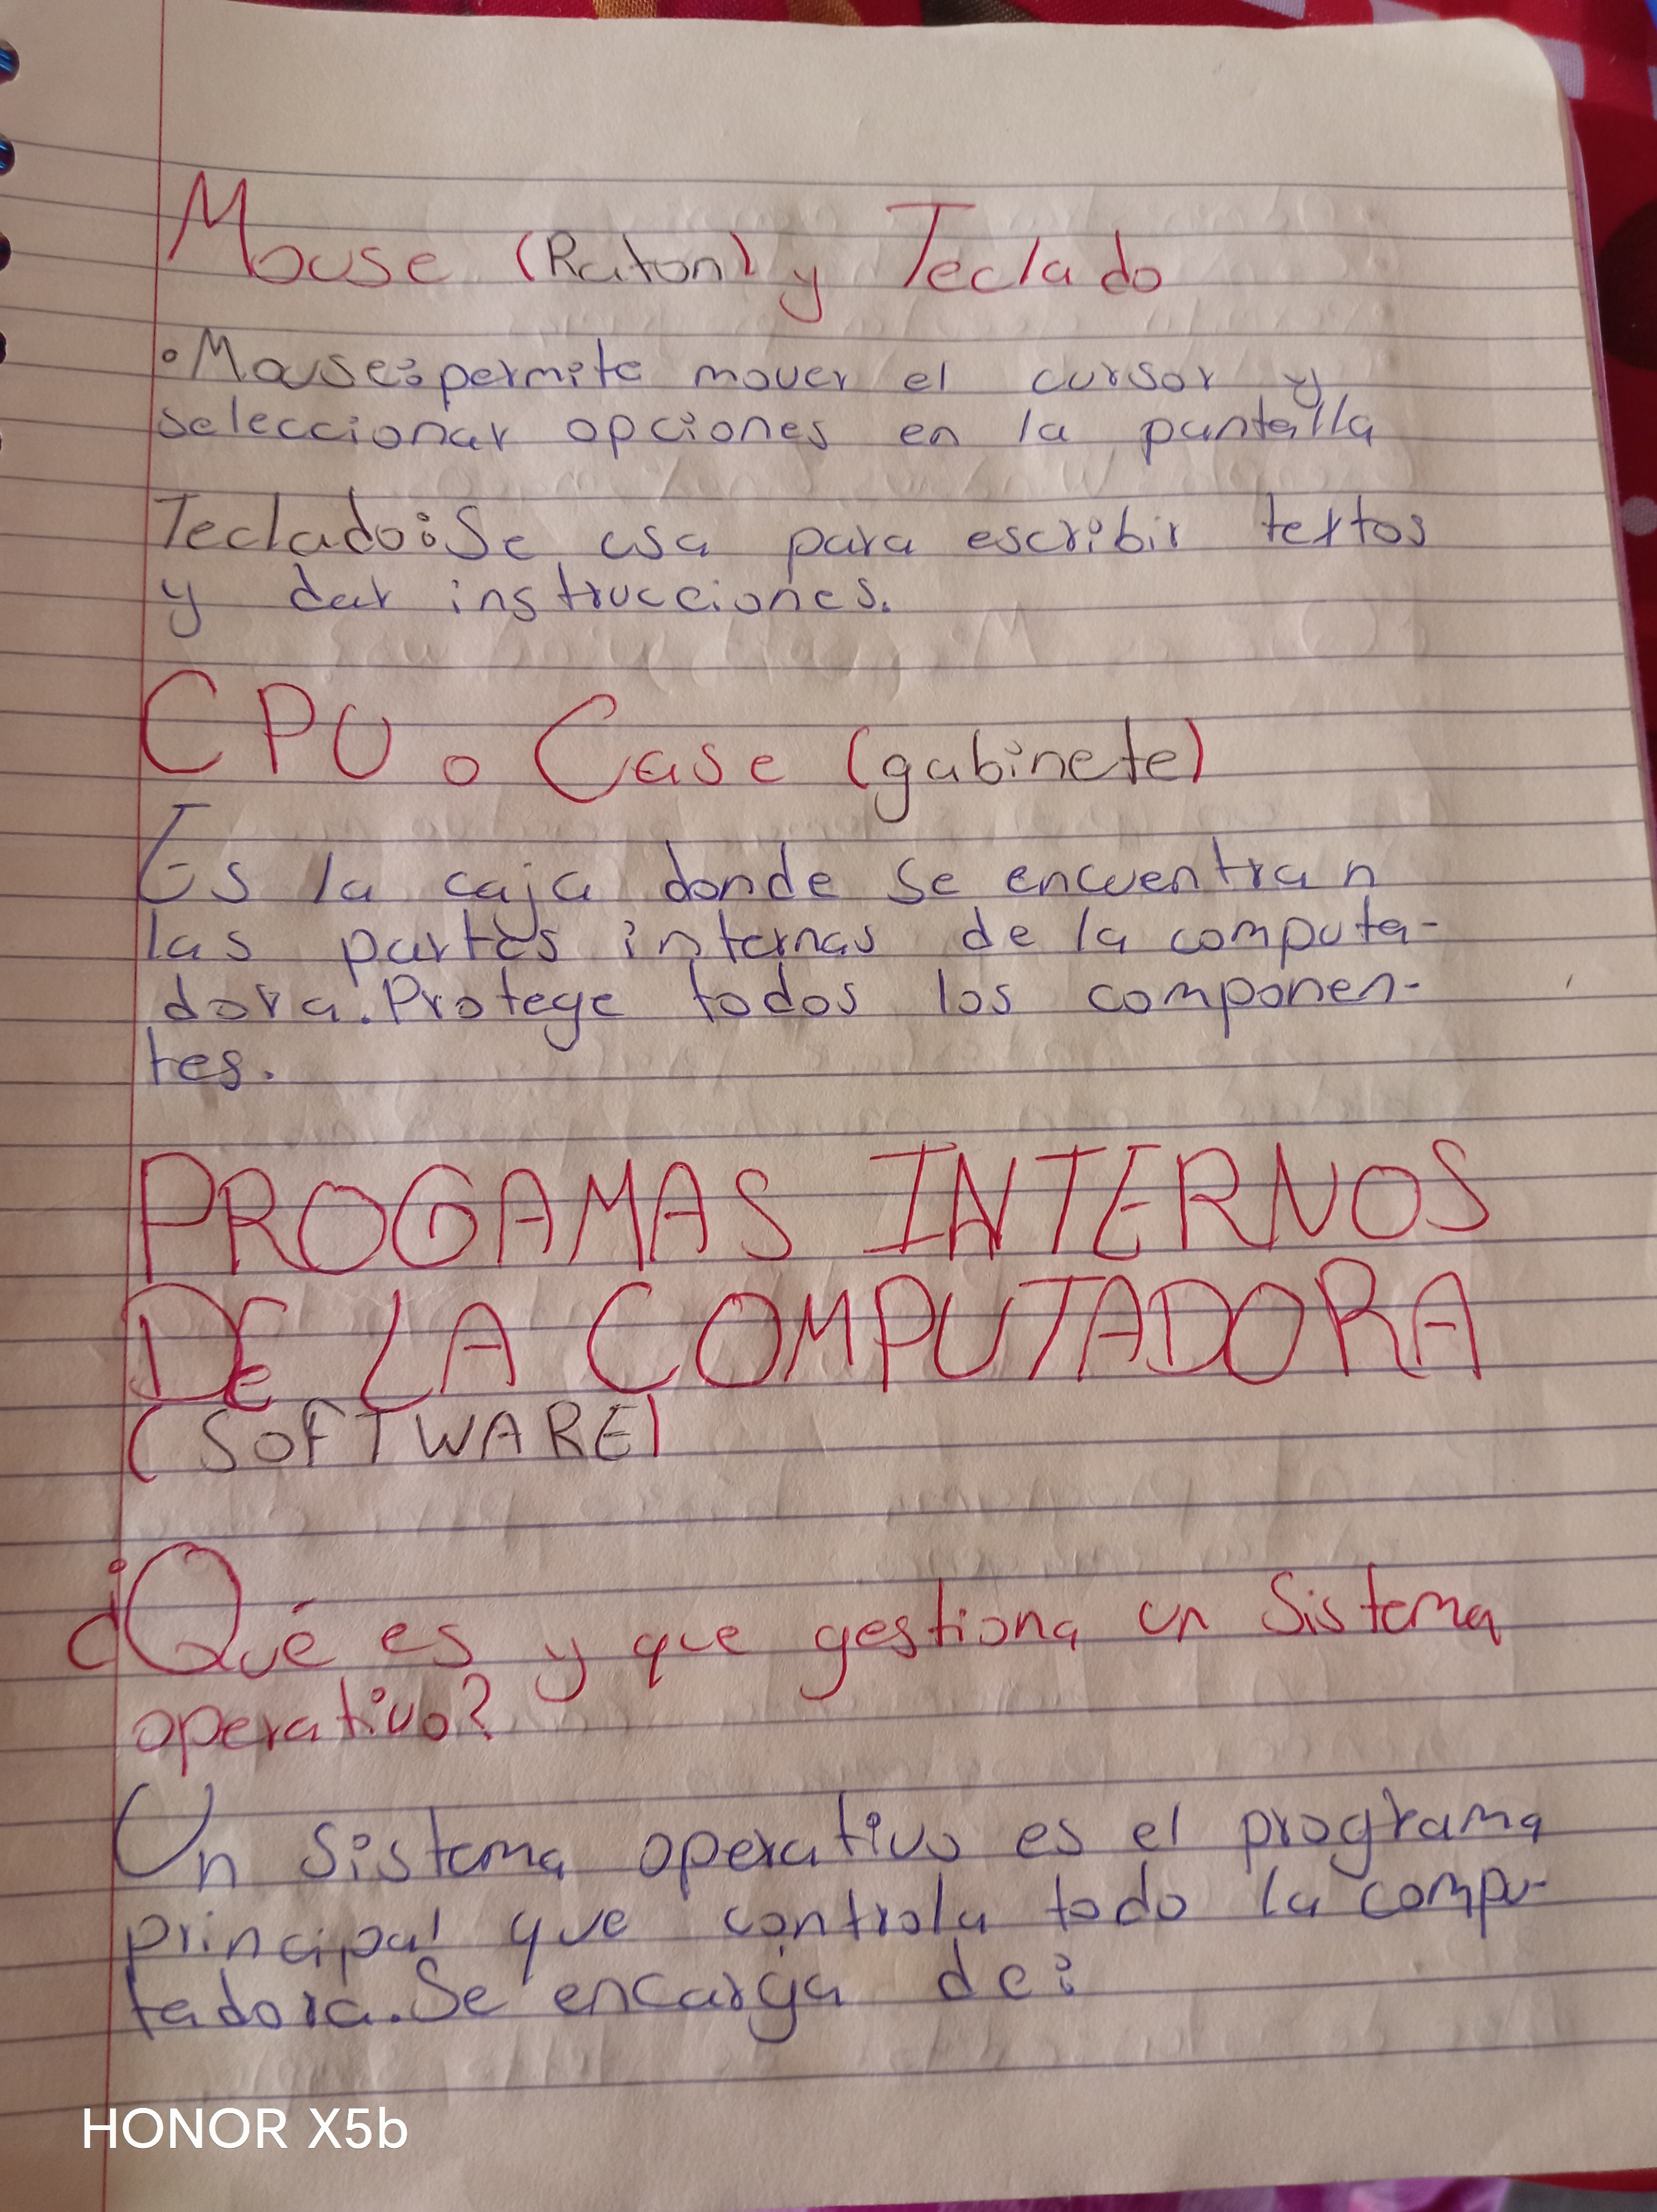 Mouse (Raton) y Teclado
•Mouse:permite mover el cursor y
seleccionar opciones en la pantalla
Teclado:Se usa para escribir textos
y dar instrucciones.
CPU o Case (gabinete)
Es la caja donde se encuentran
las partes internas de la computa-
dora.Protege todos los componen-
tes.
PROGAMAS INTERNOS
DE LA COMPUTADORA
(SOFTWARE)
¿Qué es y que gestiona un Sistema
operativo?
Un Sistema operativo es el programa
principal que controla todo la compu-
tadora.Se encarga de:
HONOR X5b